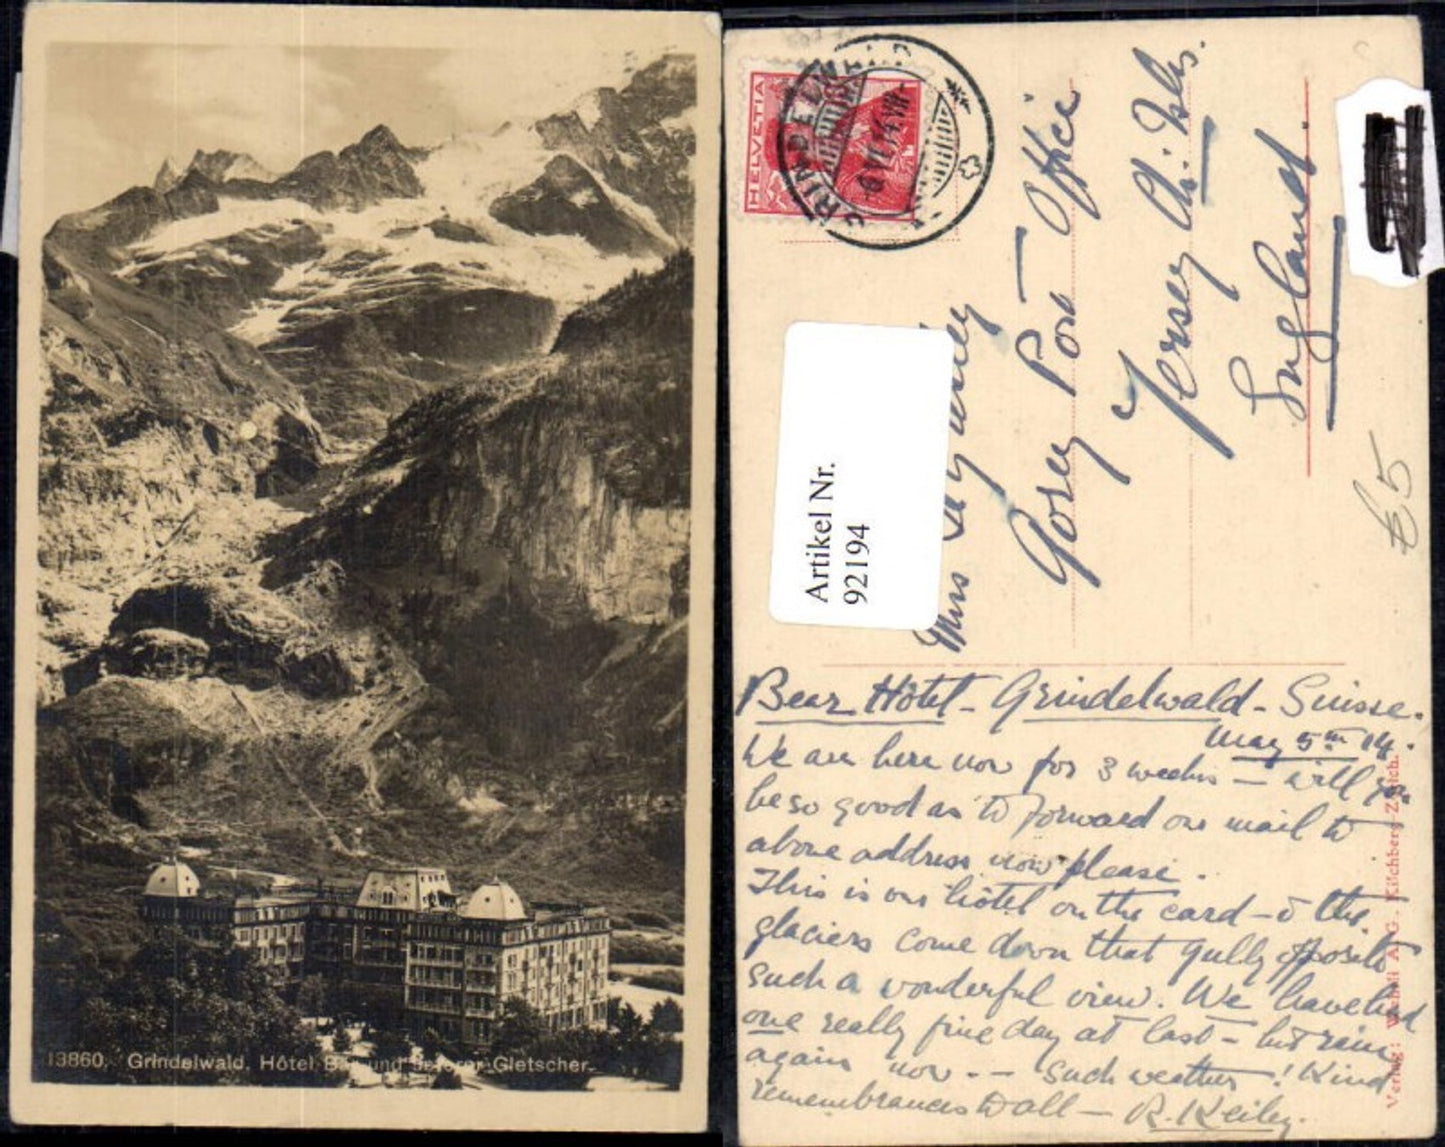 13860. Grindelwald. Hôtel Bär und unterer Gletscher.
HELVETIA
GRINDELWALD
Artikel Nr.
92194
Miss
Gorey Post Office
Jersey Ch: Isls.
England.
£5
Bear Hôtel - Grindelwald - Suisse.
May 5th 14.
We are here now for 3 weeks — will you
be so good as to forward our mail to
above address now please.
This is our hôtel on the card - & the
glaciers come down that gully opposite
such a wonderful view. We have had
one really fine day at last - but rain
again now - - such weather! Kind
remembrances to all — R. Keiley.
Verlag: Wehrli A.G., Kilchberg-Zürich.